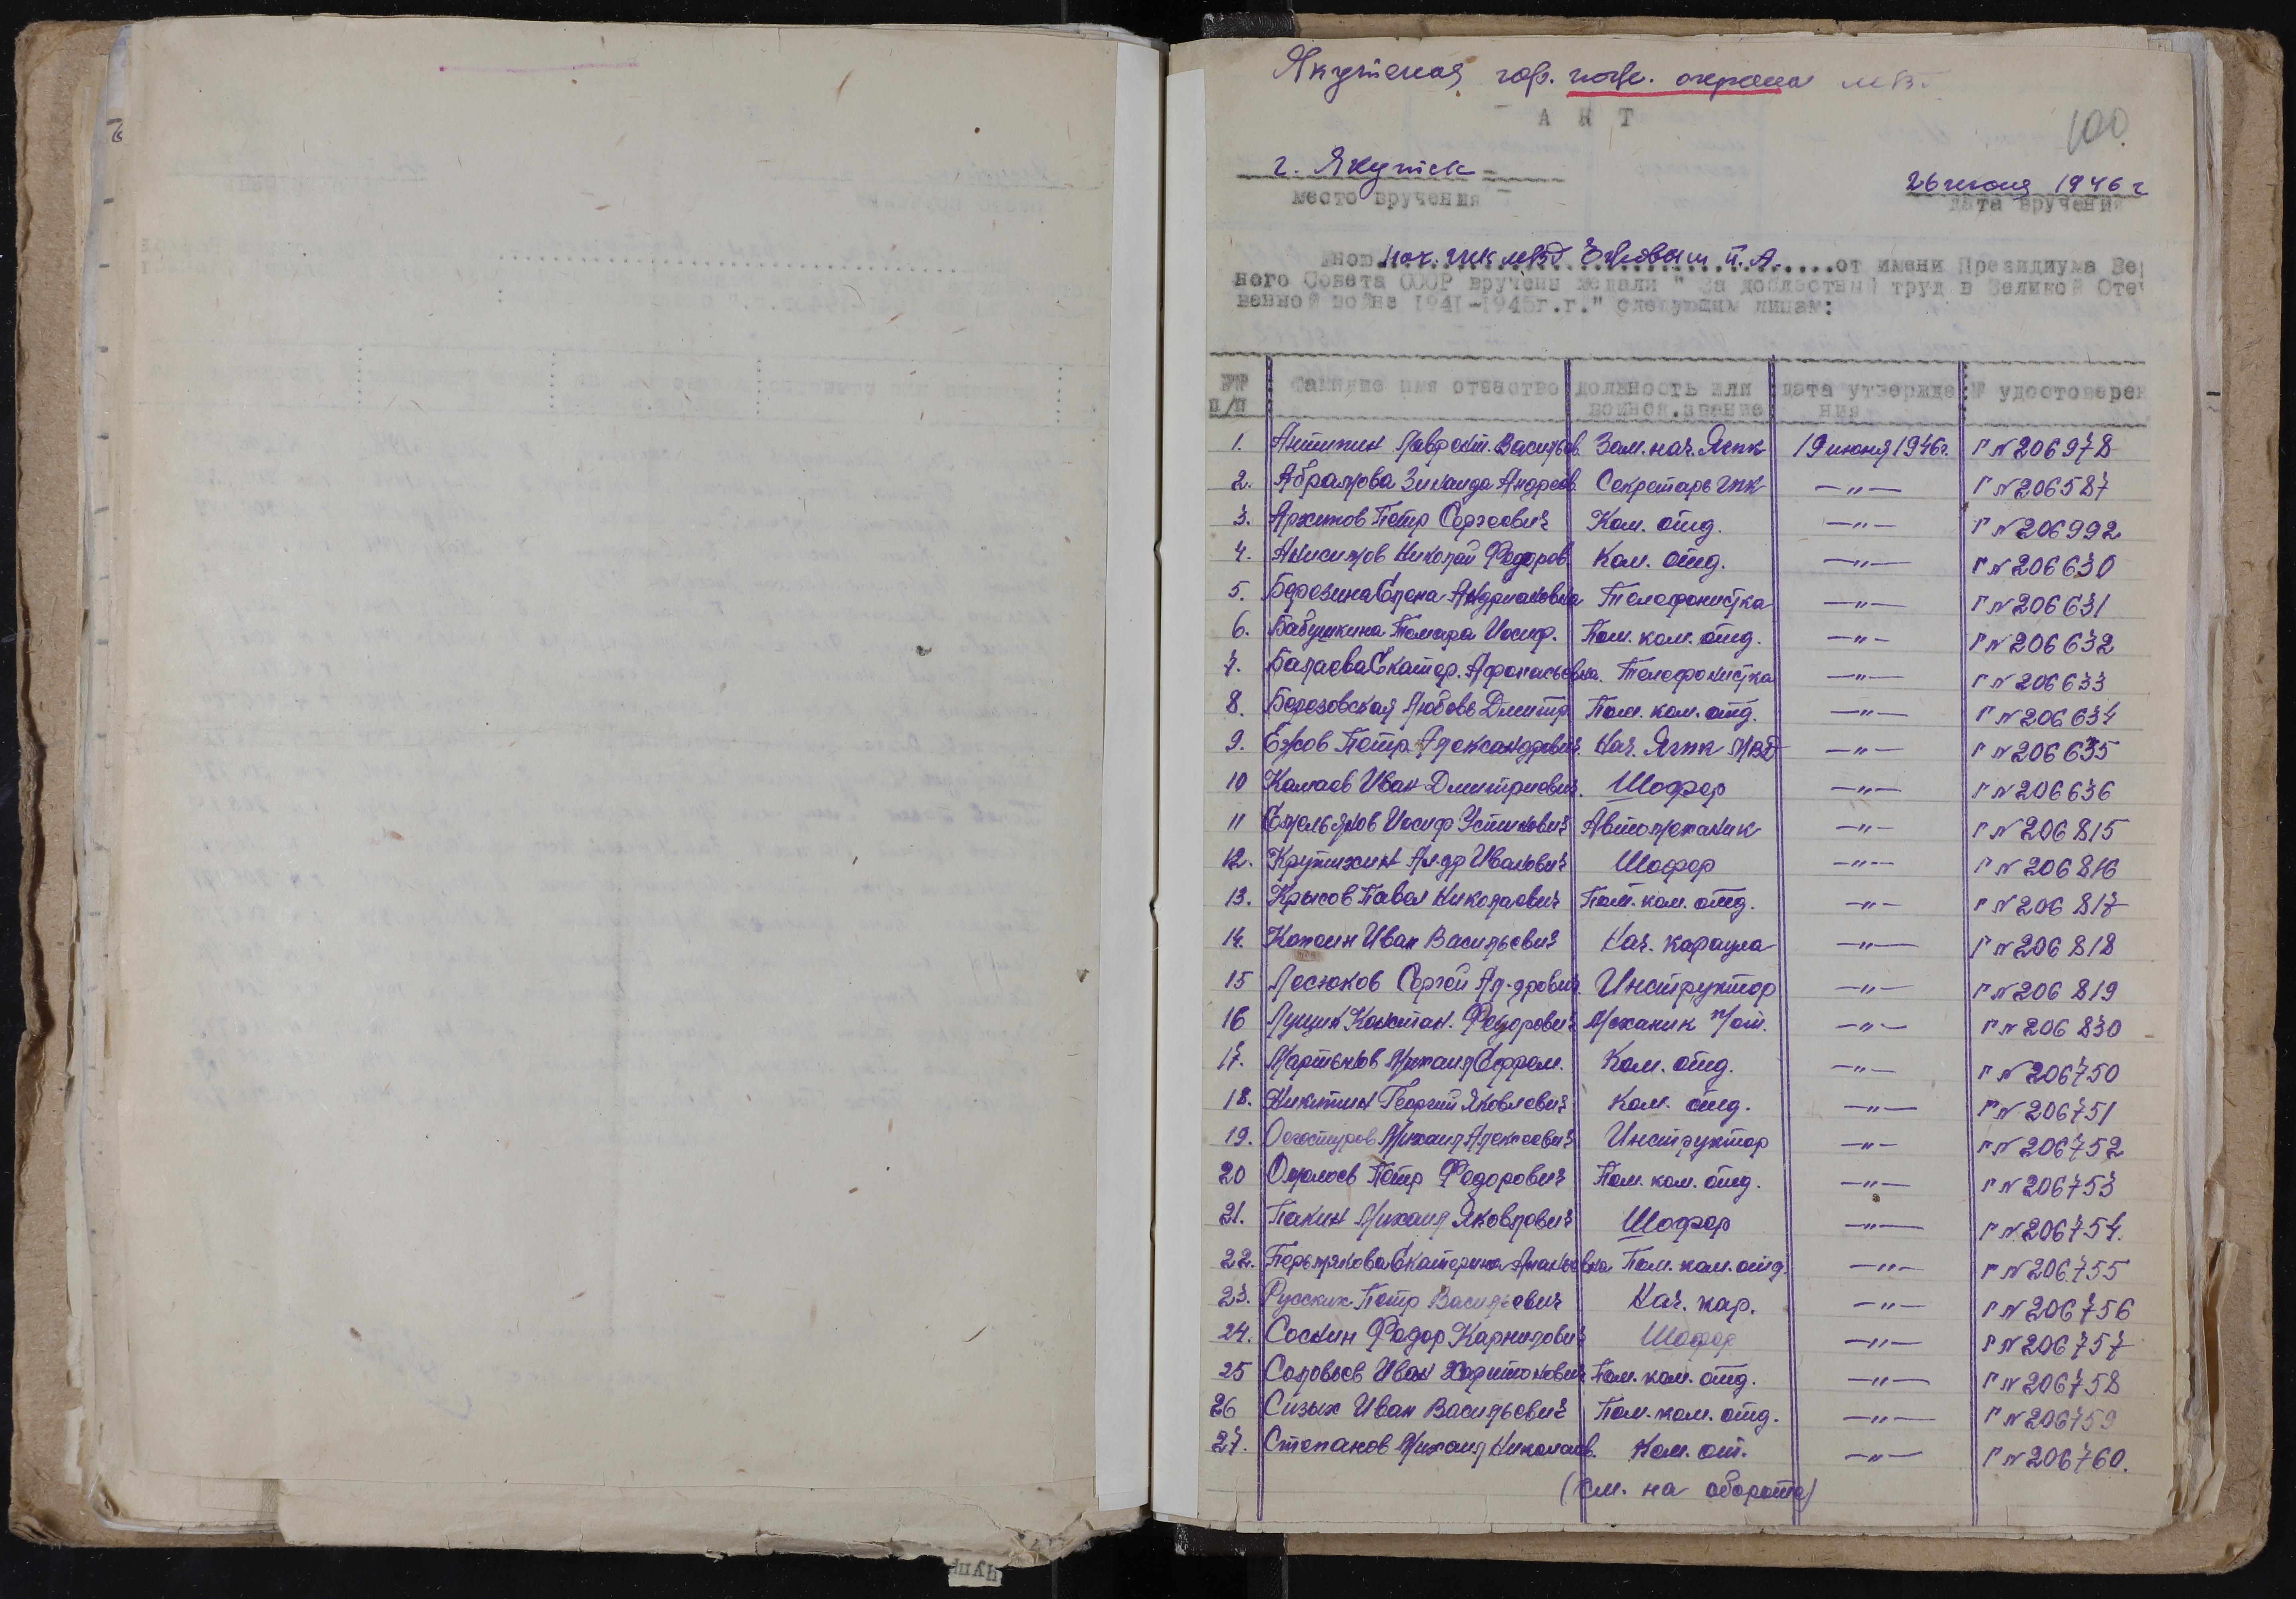 Якутская гор. пож. охрана МВД
100
А К Т
г. Якутск
место вручения
26 июня 1946 г
дата вручения
Мною нач. ГПК МВД Ежовым П.А. от имени Президиума Вер
ного Совета СССР вручены медали "За доблестный труд в Великой Отеч
венной войне 1941-1945г.г." следующим лицам:
№№ п/п фамилие имя отчество должность или воинск. звание дата утвержде ния № удостоверен
1. Антипин Лаврент. Васильев. Зам. нач. Ягпк 19 июня 1946г. Г №206978
2. Абрамова Зинаида Андреев. Секретарь ГПК —"— Г №206587
3. Архипов Петр Сергеевич Ком. отд. —"— Г №206992
4. Анисимов Николай Федоров. Ком. отд. —"— Г №206630
5. Березина Елена Андриановна Телефонистка —"— Г №206631
6. Бабушкина Тамара Иосиф. Пом. ком. отд. —"— Г №206632
7. Балаева Екатер. Афанасьевна. Телефонистка —"— Г №206633
8. Березовская Любовь Дмитр Пом. ком. отд. —"— Г №206634
9. Ежов Петр Александрович. Нач. Ягпк МВД —"— Г №206635
10 Камаев Иван Дмитриевич. Шофер —"— Г №206636
11 Емельянов Иосиф Устинович Автомеханик —"— Г №206815
12. Крутихин Ал-др Иванович Шофер —"— Г №206816
13. Крысов Павел Николаевич Пом. ком. отд. —"— Г №206817
14. Копоин Иван Васильевич Нач. караула —"— Г №206818
15 Лосюков Сергей Ал-дрович. Инструктор —"— Г №206819
16 Лущин Констан. Федорович Механик п/от. —"— Г №206830
17. Мартынов Михаил Ефрем. Ком. отд. —"— Г №206750
18. Никитин Георгий Яковлевич Ком. отд. —"— Г №206751
19. Михаил Алексеевич Инструктор —"— Г №206752
20 Петр Федорович Пом. ком. отд. —"— Г №206753
21. Пакин Михаил Яковлевич Шофер —"— Г №206754.
22. Пермякова Екатерина Ананьевна Пом. ком. отд. —"— Г №206755
23. Русских Петр Васильевич Нач. кар. —"— Г №206756
24. Соснин Федор Карнилович Шофер —"— Г №206757
25 Соловьев Иван Харитонович Пом. ком. отд. —"— Г №206758
26 Сизых Иван Васильевич Пом. ком. отд. —"— Г №206759
27. Степанов Михаил Николаев. Ком. от. —"— Г №206760.
(см. на обороте)